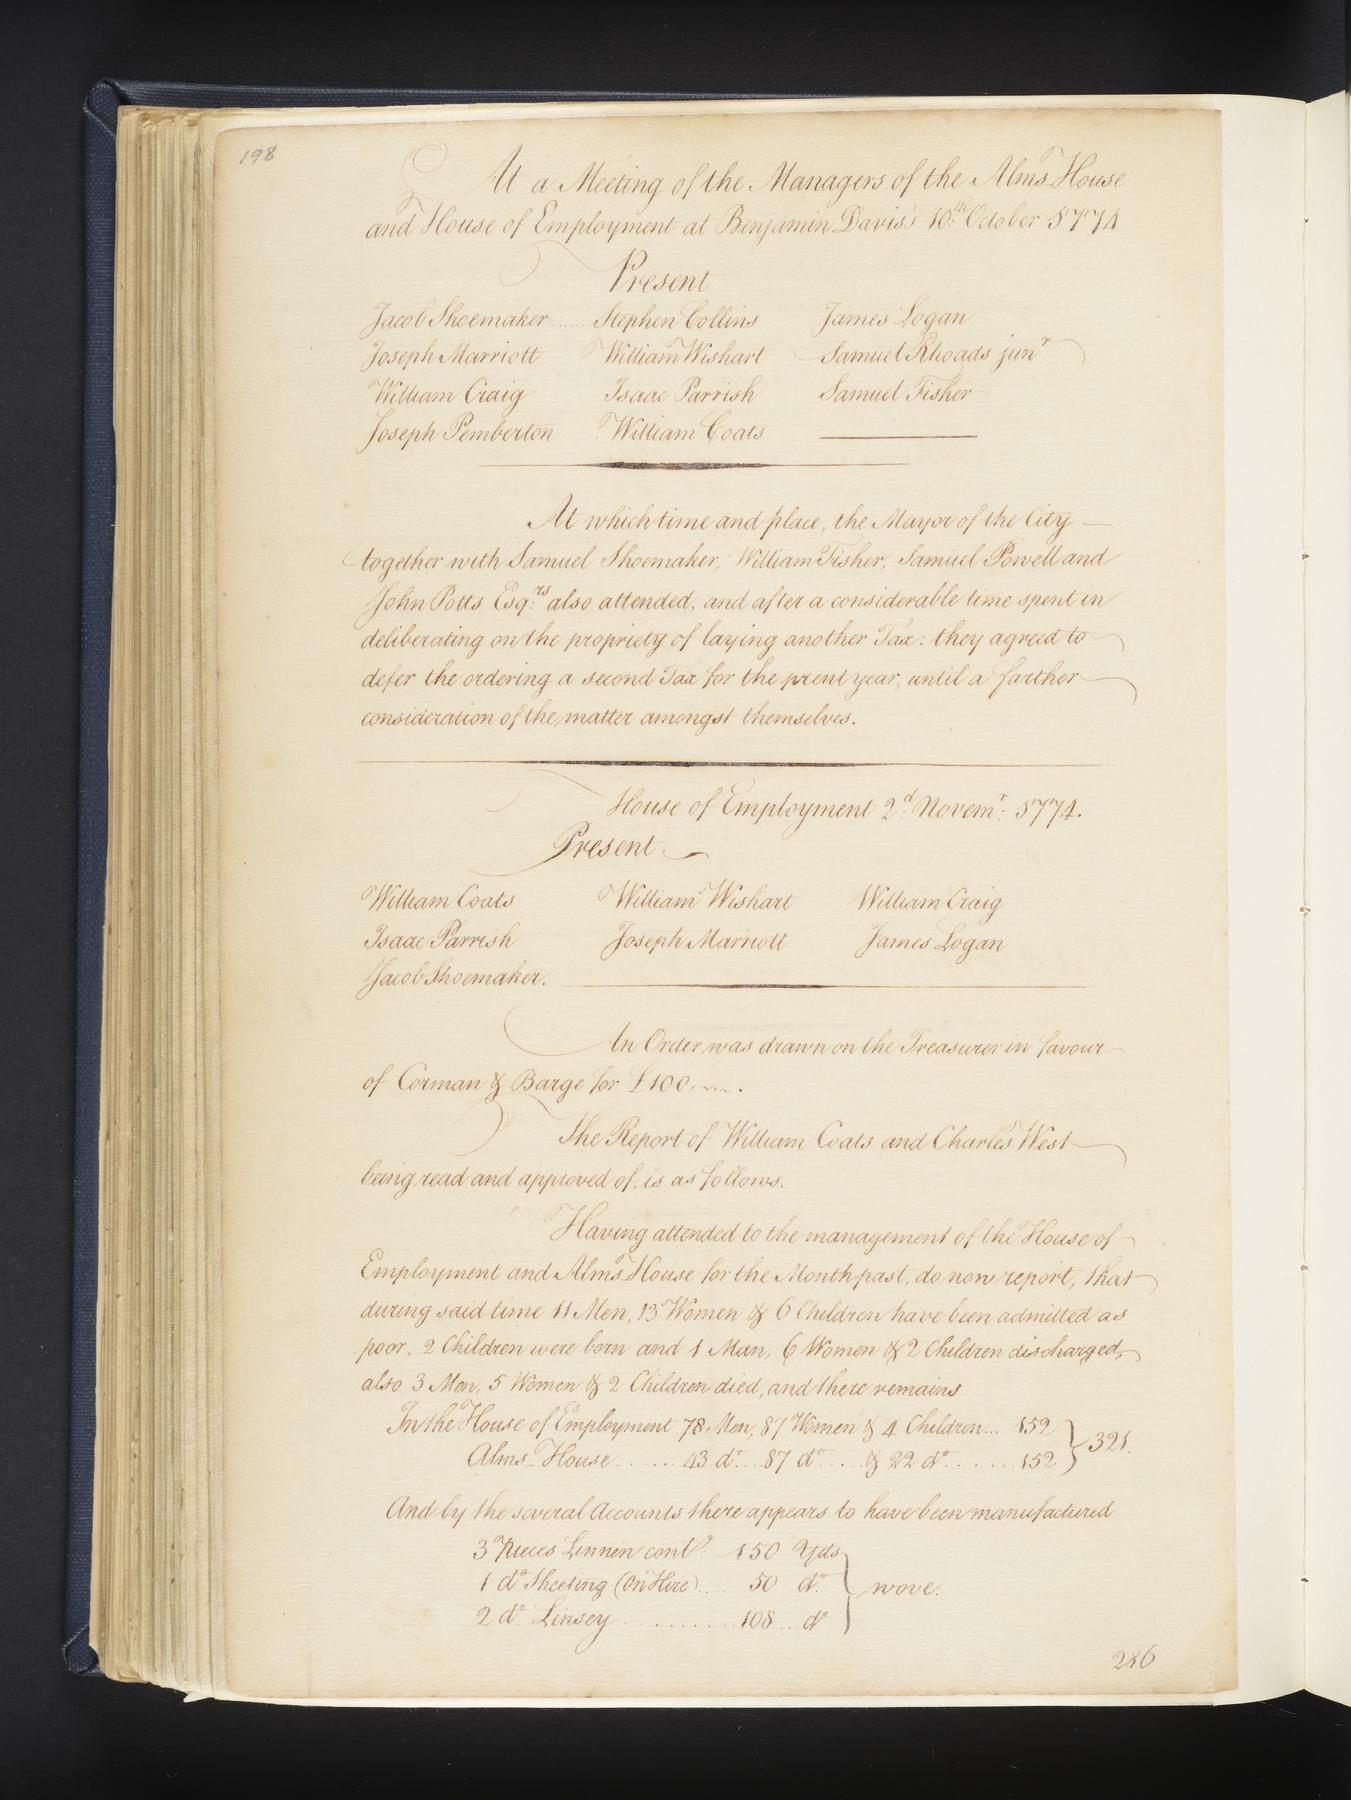 198
At a Meeting of the Managers of the Alms House
and House of Employment at Benjamin Davis's 10:th October 5774
Present
Jacob Shoemaker ..... Stephen Collins James Logan
Joseph Marriott William Wishart Samuel Rhoads junr
William Craig Isaac Parrish Samuel Fisher
Joseph Pemberton William Coats
At which time and place, the Mayor of the City
together with Samuel Shoemaker, William Fisher, Samuel Powell and
John Potts Esq:rs also attended, and after a considerable time spent in
deliberating on the propriety of laying another Tax: they agreed to
defer the ordering a second Tax for the prent year, until a farther
consideration of the matter amongst themselves.
House of Employment 2:d Novem:r 5774.
Present
William Coats William Wishart William Craig
Isaac Parrish Joseph Marriott James Logan
Jacob Shoemaker.
An Order was drawn on the Treasurer in favour
of Corman & Barge for £100 .
The Report of William Coats and Charles West
being read and approved of, is as follows.
Having attended to the management of the House of
Employment and Alms House for the Month past, do now report, that
during said time 11 Men, 13 Women & 6 Children have been admitted as
poor, 2 Children were born and 1 Man, 6 Women & 2 Children discharged,
also 3 Men, 5 Women & 2 Children died, and there remains
In the House of Employment 78 Men, 87 Women & 4 Children... 152
Alms House ....... 43 do... 87 do.... & 22 do....... 152 } 321.
And by the several Accounts there appears to have been manufactured
3 Pieces Linnen cont.g 150 Yds
1 do Sheeting (on Hire) .... 50 do. } wove.
2 do. Linsey ............ 108 .. do
286